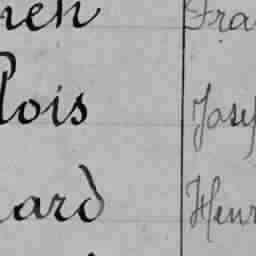 nen Fra
lois Josep
nard Henr